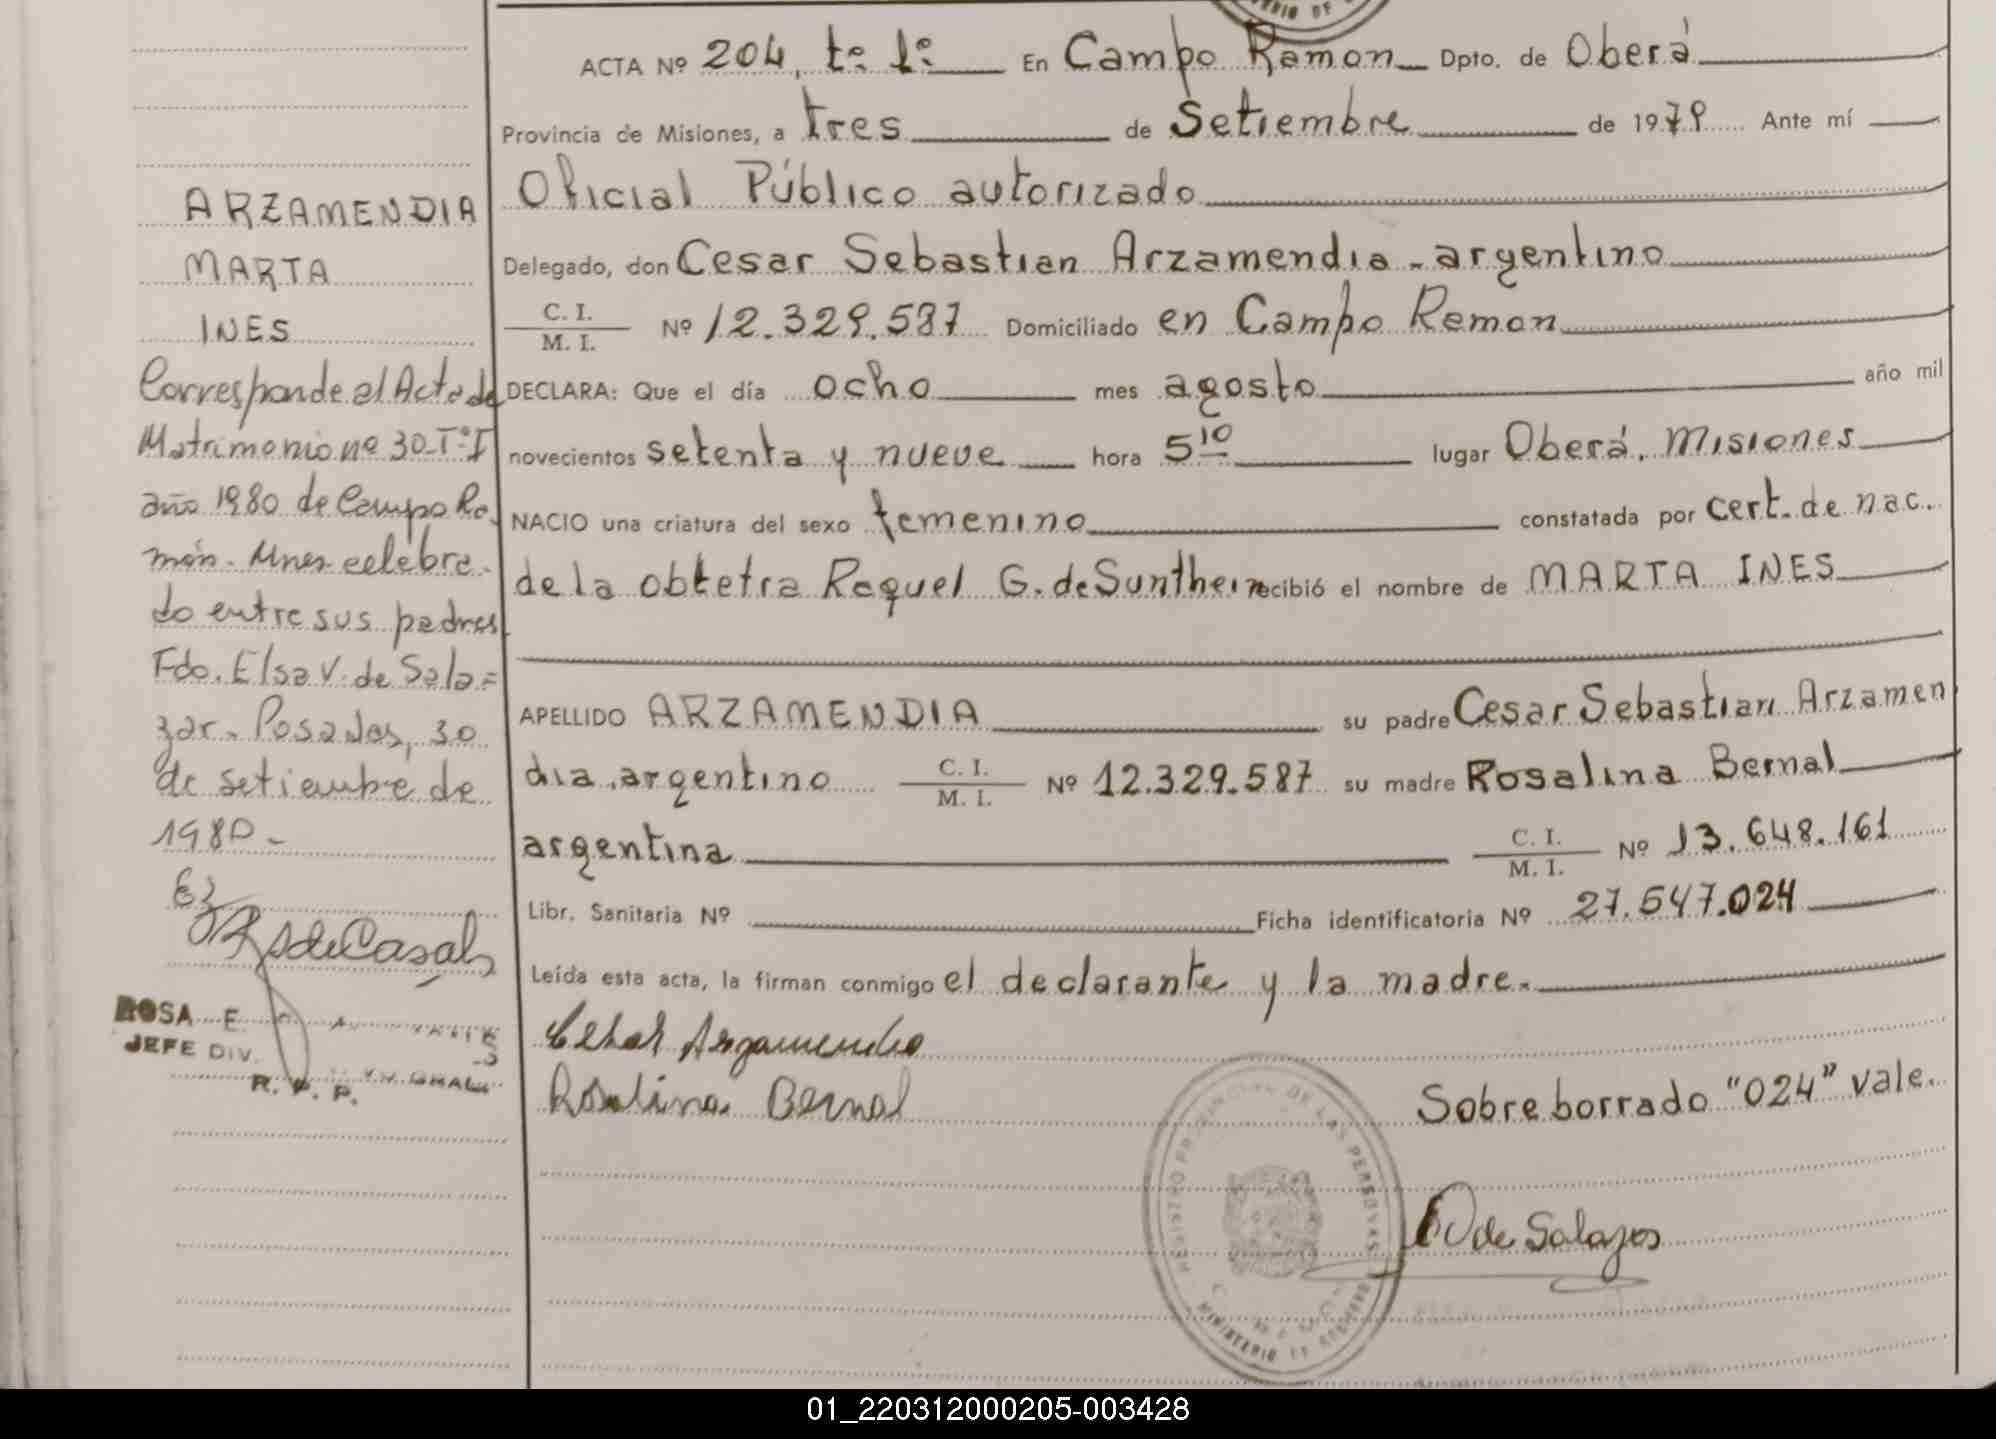 ACTA Nº 204, tº 1º En Campo Ramon Dpto. de Oberá
Provincia de Misiones, a tres de Setiembre de 1979 Ante mí
Oficial Público autorizado
Delegado, don Cesar Sebastian Arzamendia - argentino
C. I. / M. I. Nº 12.329.587 Domiciliado en Campo Ramon
DECLARA: Que el día ocho mes agosto año mil
novecientos setenta y nueve hora 5 10 lugar Oberá, Misiones
NACIO una criatura del sexo femenino constatada por cert. de nac.
de la obtetra Raquel G. de Sunthein recibió el nombre de MARTA INES
APELLIDO ARZAMENDIA su padre Cesar Sebastian Arzamen
dia, argentino C. I. / M. I. Nº 12.329.587 su madre Rosalina Bernal
argentina C. I. / M. I. Nº 13.648.161
Libr. Sanitaria Nº Ficha identificatoria Nº 27.547.024
Leída esta acta, la firman conmigo el declarante y la madre.
Cesar Arzamendia
Rosalina Bernal
Sobre borrado "024" vale.
V de Salazar
REGISTRO PROVINCIAL DE LAS PERSONAS
MINISTERIO DE GOBIERNO
ARZAMENDIA
MARTA
INES
Corresponde al Acta de
Matrimonio nº 30-Tº I
año 1980 de Campo Ra
món - Mnes celebra-
do entre sus padres
Fdo. Elsa V. de Sala=
zar - Posadas, 30
de setiembre de
1980 -
de Casals
ROSA E.
JEFE DIV.
R. P. P.
MINISTERIO DE
01_220312000205-003428